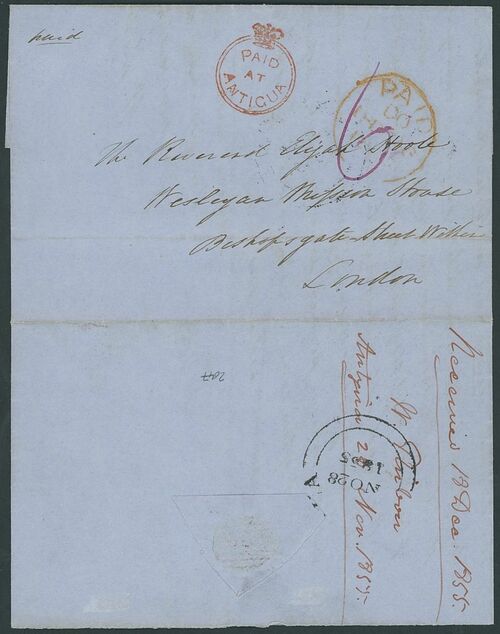 paid
PAID
AT
ANTIGUA
PAI
6
The Reverend Elijah Hoole
Wesleyan Mission House
Bishopsgate Street Within
London
Received 13 Dec. 1855.
Antigua 28 Nov. 1855.
NO 28
1855
A